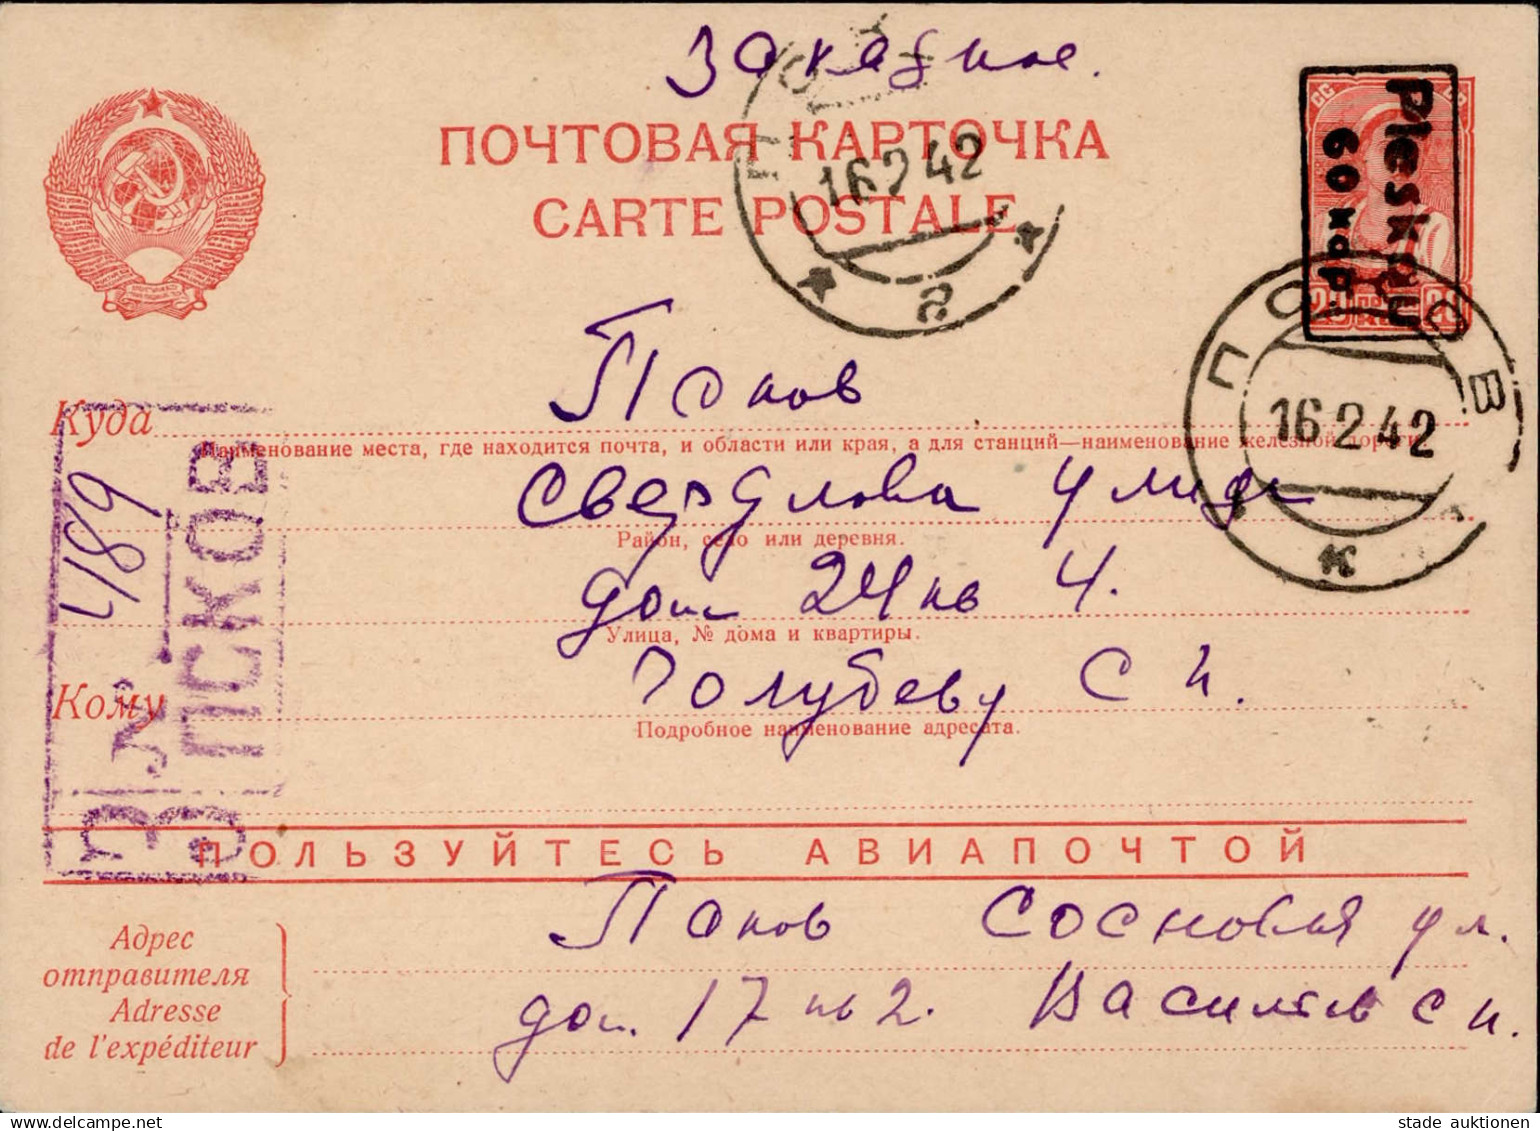 Заказное.
ПОЧТОВАЯ КАРТОЧКА
CARTE POSTALE
16 2 42
Pleskau
60 кор.
20 20
ПСКОВ
16 2 42
Куда Псков
Наименование места, где находится почта, и области или края, а для станций—наименование железной дороги
Свердлова улица
Район, село или деревня.
дом 24 кв 4.
Улица, № дома и квартиры.
Кому Голубеву С И.
Подробное наименование адресата.
З
ПСКОВ
№ 489
ПОЛЬЗУЙТЕСЬ АВИАПОЧТОЙ
Адрес
отправителя
Adresse
de l'expéditeur
Псков Сосновая ул.
дом. 17 кв 2. Васильев С И.
stade auktionen